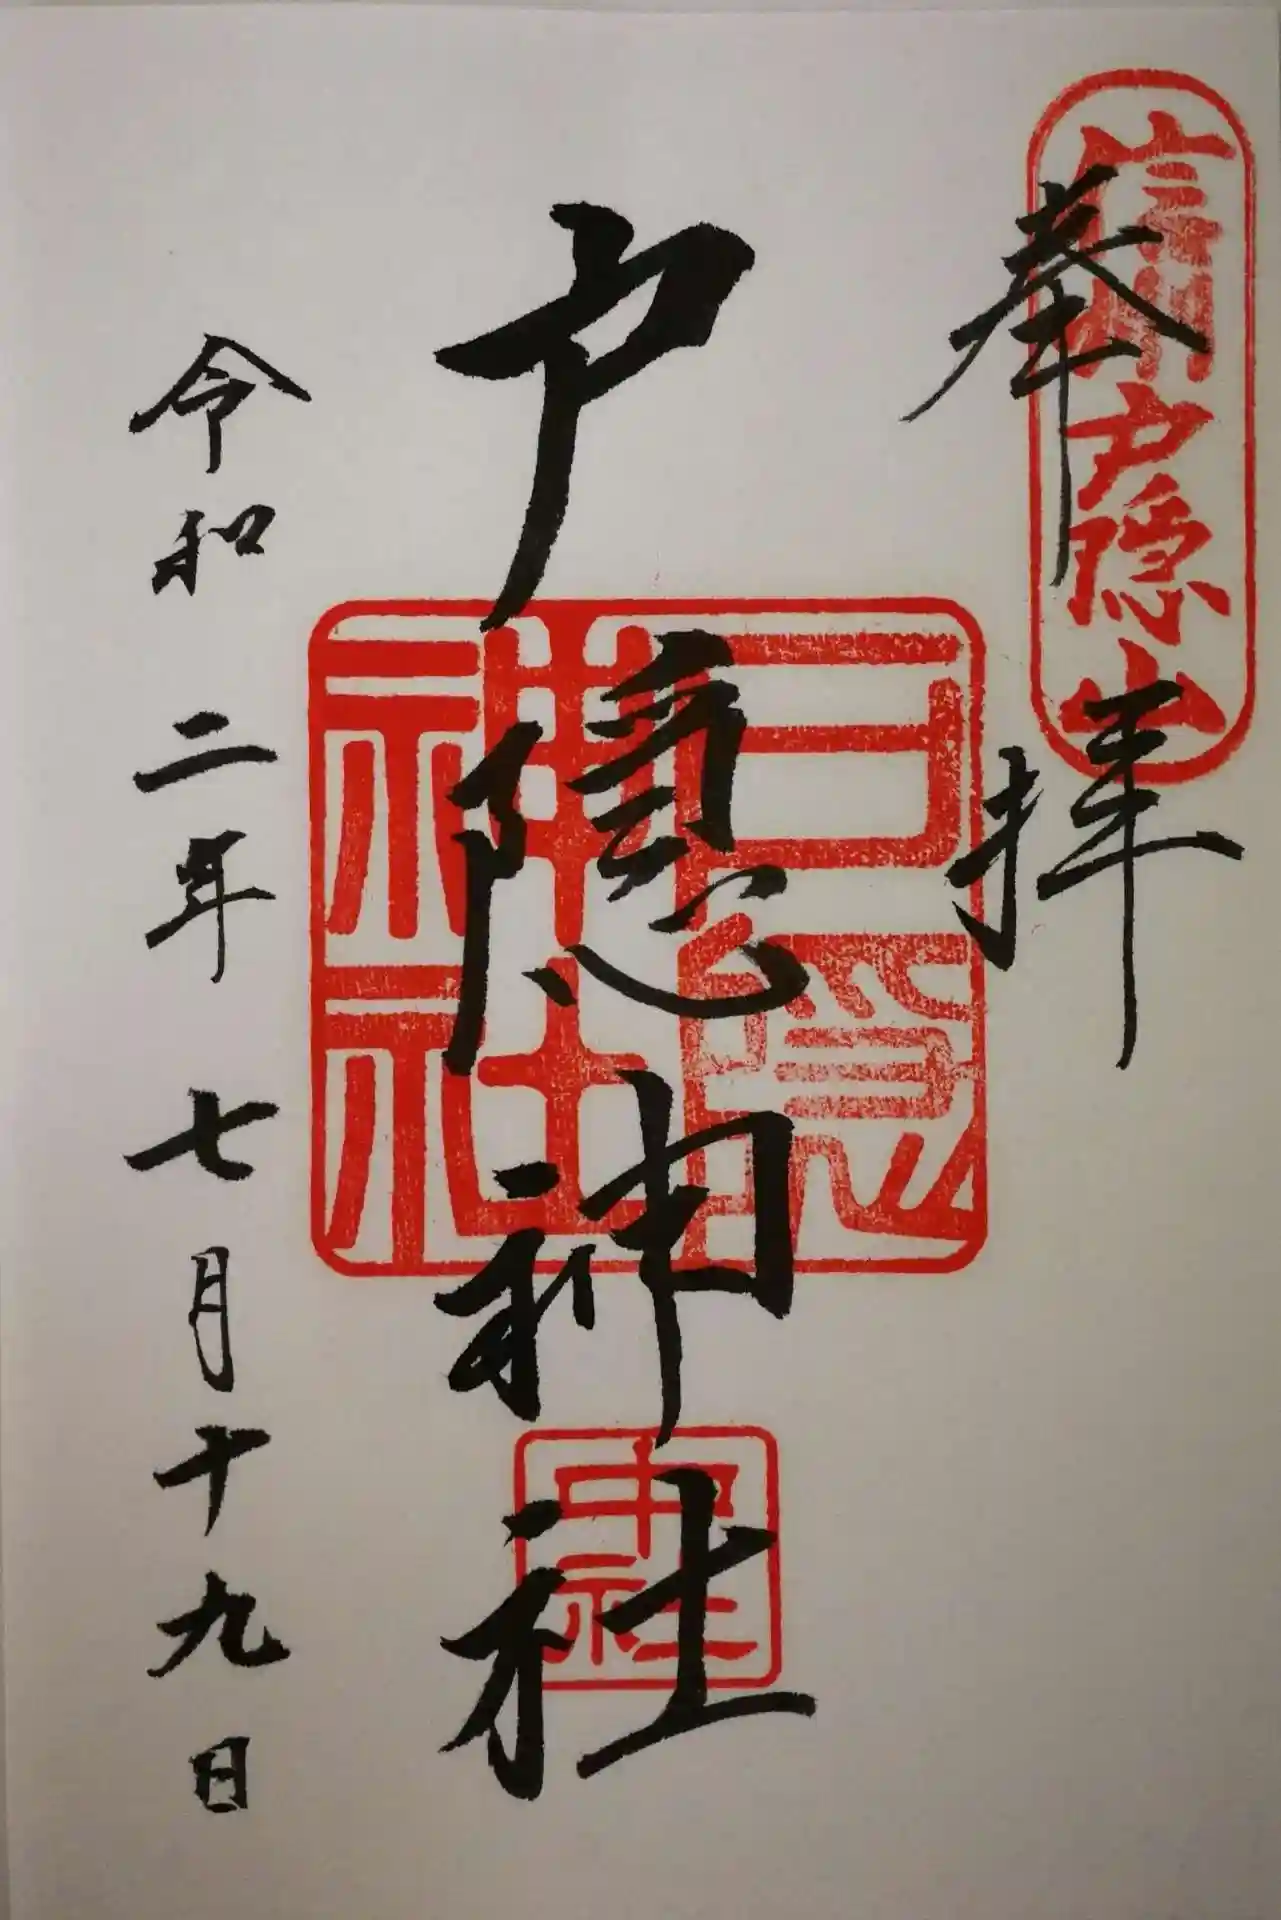 信州戸隠山
奉拝
戸隠神社
戸隠神社
中社
令和二年七月十九日